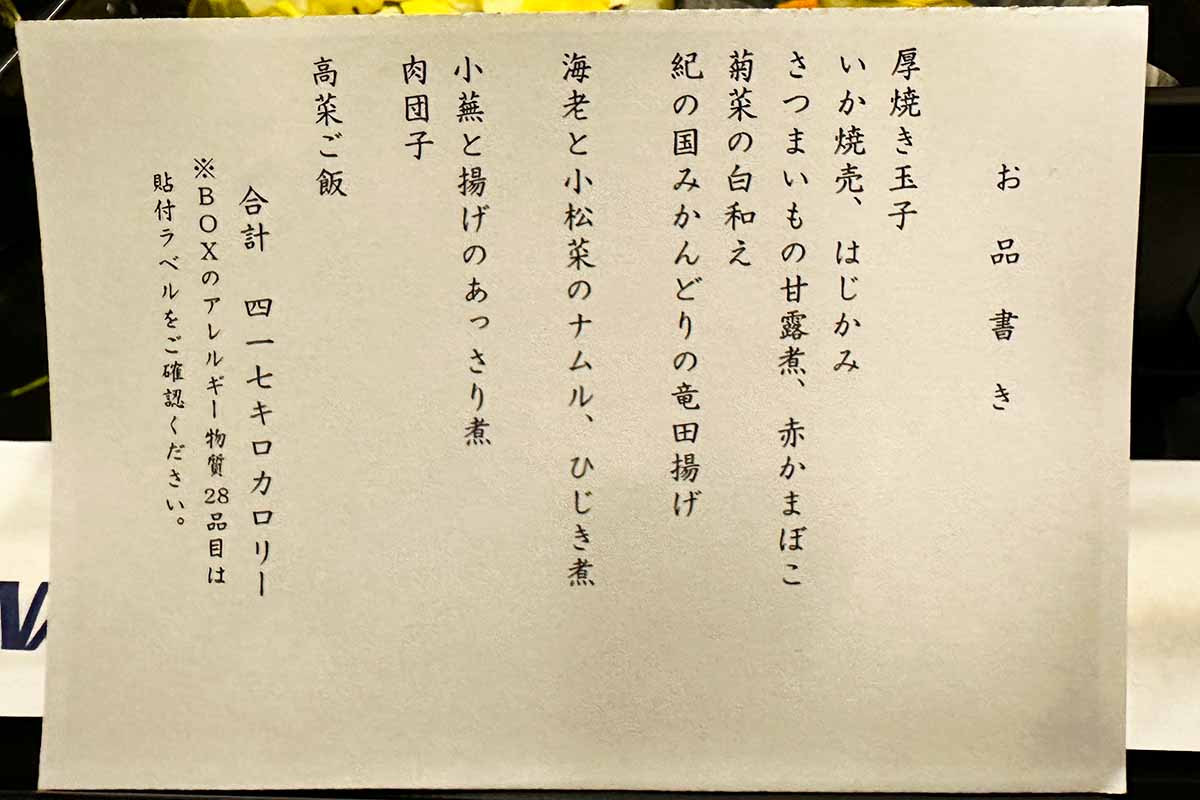 お品書き
厚焼き玉子
いか焼売、はじかみ
さつまいもの甘露煮、赤かまぼこ
菊菜の白和え
紀の国みかんどりの竜田揚げ
海老と小松菜のナムル、ひじき煮
小蕪と揚げのあっさり煮
肉団子
高菜ご飯
合計 四一七キロカロリー
※BOXのアレルギー物質28品目は
貼付ラベルをご確認ください。